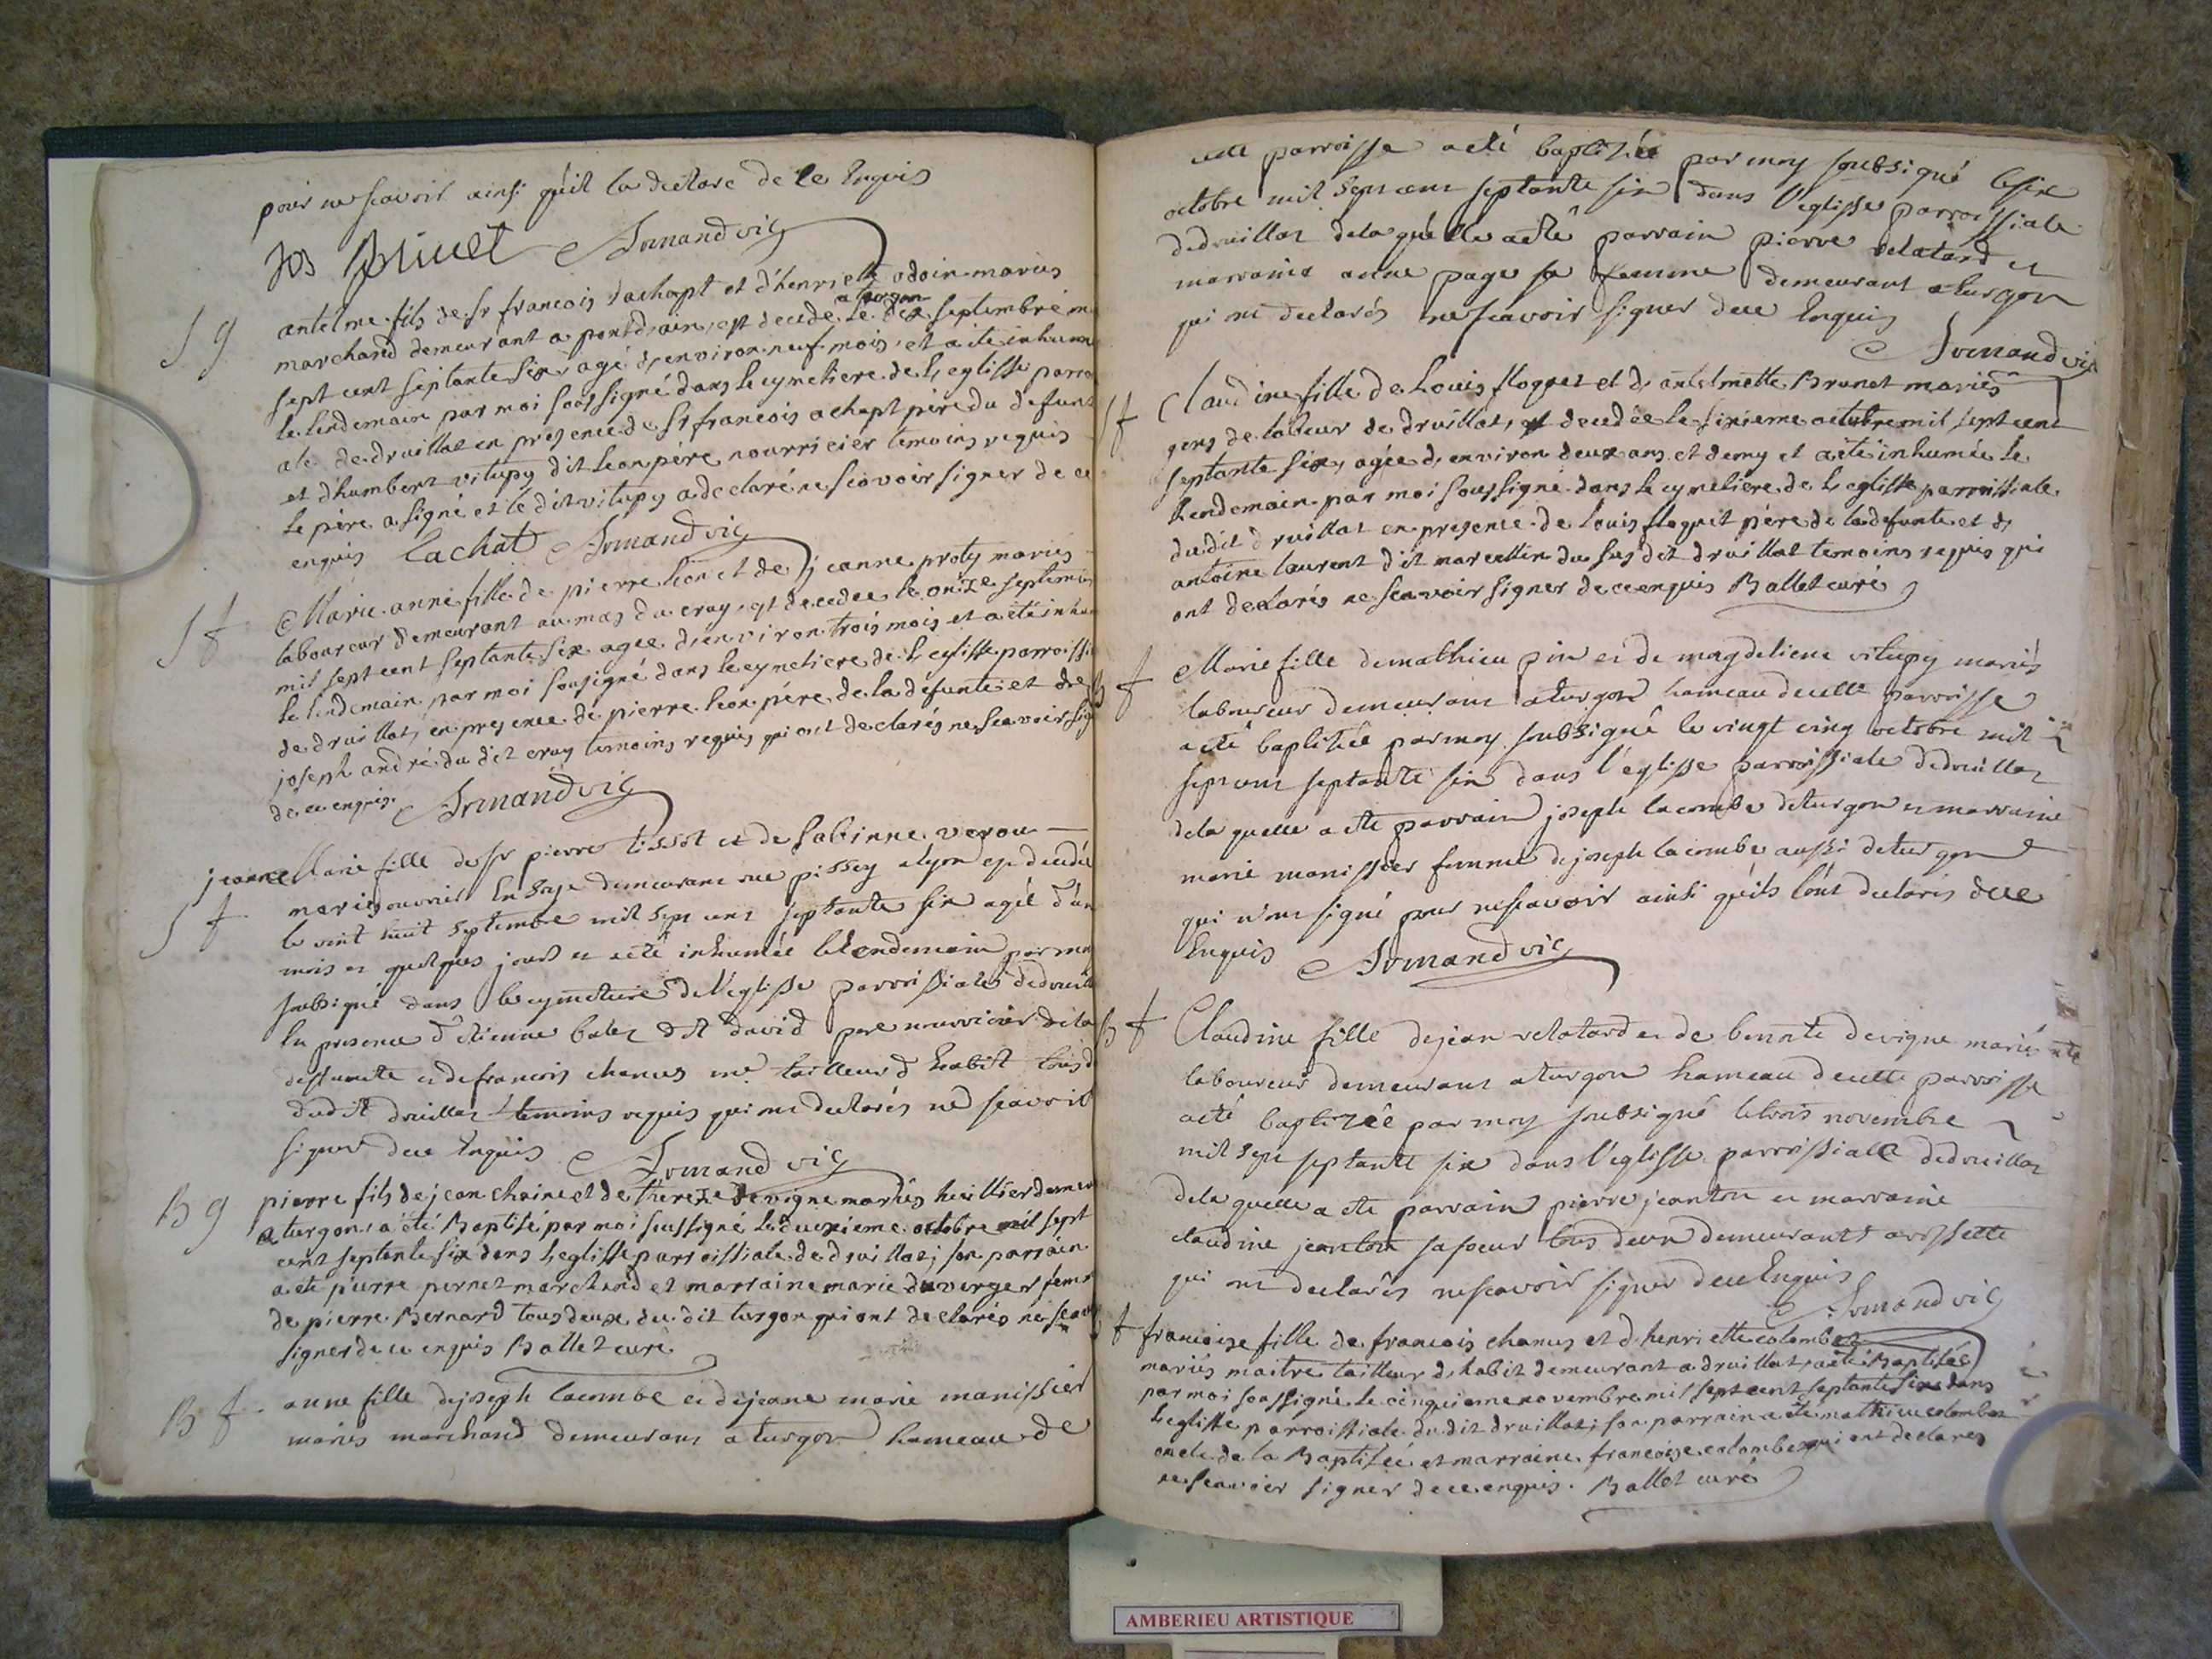 pour ne scavoir ainsi qu'il la declare de ce Enquis
Jos Brivet Armand vic
S g antelme fils de sr francois dachapt et d'henriette odoin mariés
marchand demeurant a pontdain, est decede a turgon le dix septembre mi
sept cent septante six, agé d, environ neuf mois, et a ete inhumé
le lendemain par moi soussigné dans le cymetiere de L, eglisse parro
ale de druillat en presence de sr francois achapt père du defunt
et d'humbert vitupy dit Leon père nourricier temoins requis
le père a signé et le dit vitupy a declaré ne sçavoir signer de ce
enquis Lachat Armand vic
S f Marie anne fille de pierre Leon et de jeanne proty mariés
laboureur demeurant au mas du cray, est decedee le onze septembre
mil sept cent septante six agée d'environ trois mois et a été inhu
le lendemain par moi sousigné dans le cymetiere de L eglisse parroissi
de druillat, en presence de pierre Leon père de la defunte et de
joseph andré du dit cray temoins requis qui ont declarés ne sçavoir sig
de ce enquis. Armand vic
jeanne Marie fille de sr pierre tissot et de Sabinne verou
S f mariés ouvrier En soye demeurant rue pissey a lyon est decedée
le vint huit septembre mil sept cent septante six agée d'un
mois et quelques jours et a eté inhumée le lendemain par moy
subsigné dans le cymetiere de l'eglisse parroissiale de druill
En presence d'etienne balet dit david pere nourricier de la
deffunte et de francois chanus me tailleur d habit tous d
dudit druillat temoins requis qui ont declarés ne scavoir
signer de ce Enquis Armand vic
B g pierre fils de jean chaine et de thereze devigne mariés huillier demeu
a turgon, a été Baptisé par moi soussigné le deuxieme octobre mil sept
cent septente six dans L eglisse parroissiale de druillat; son parrain
a ete pierre pernet marchand et marraine marie duverger fem
de pierre Bernard tous deux du dit turgon qui ont declarés ne scav
signer de ce enquis Ballet curé
B f anne fille de joseph lacombe et de jeane marie manissier
mariés marchand demeurant a turgon hameau de
cette parroisse a eté baptisée par moy soubsigné le six
octobre mil sept cent septante six dans l'eglisse parroissiale
de druillat de la quelle a eté parrain pierre velatard et
marraine anne page sa femme demeurant a turgon
qui ont declarés ne scavoir signer de ce Enquis
Armand vic
S f Claudine fille de Louis floquet et d, antelmette Brunet mariés
gens de labeur de druillat, est decedée le sixieme octobre mil sept cent
septante six, agée d, environ deux ans et demy et a été inhumée le
Lendemain par moi soussigné dans le cymetiere de L eglisse parroissiale
du dit druillat en presence de Louis floquet père de la defunte et d,
antoine laurent dit marcellin du sus dit druillat temoins requis qui
ont declarés ne sçavoir signer de ce enquis Ballet curé
B f Marie fille de mathieu pin et de magdeliene vitupy mariés
laboureur demeurant a turgon hameau de cette parroisse
a eté baptisée par moy subsigné le vingt cinq octobre mil
sept cent septante six dans l'eglisse parroissiale de druillat
de la quelle a eté parrain joseph lacombe de turgon et marraine
marie manissier femme de joseph lacombe aussi de turgon
qui n'ont signé pour ne scavoir ainsi qu'ils l'ont declarés de ce
Enquis Armand vic
B f Claudine fille de jean velatard et de bennte devigne mariés
laboureur demeurant a turgon hameau de cette parroisse
a eté baptizée par moy subsigné le trois novembre
mil sept septante six dans l'eglisse parroissialle de druillat
de la quelle a eté parrain pierre jeanton et marraine
claudine jeanton sa soeur tous deux demeurants a rossette
qui ont declarés ne scavoir signer de ce Enquis
Armand vic
B f francoise fille de francois chanus et d, henriette colomber
mariés maitre tailleur d, habit demeurant a druillat, a été Baptisée
par moi soussigné le cinquieme novembre mil sept cent septante six dans
L eglisse parroissiale du dit druillat; son parrain a été mathieu colomber
oncle de la Baptisée et marraine francoise colomber qui ont declarés
ne sçavoir signer de ce enquis. Ballet curé
AMBERIEU ARTISTIQUE